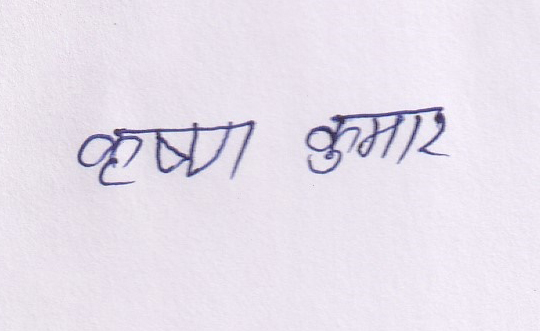 कृष्ण कुमार